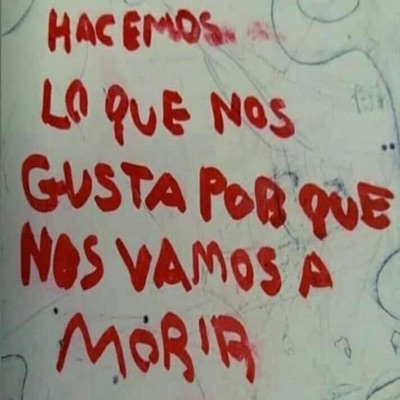 HACEMOS
LO QUE NOS
GUSTA POR QUE
NOS VAMOS A
MORIR